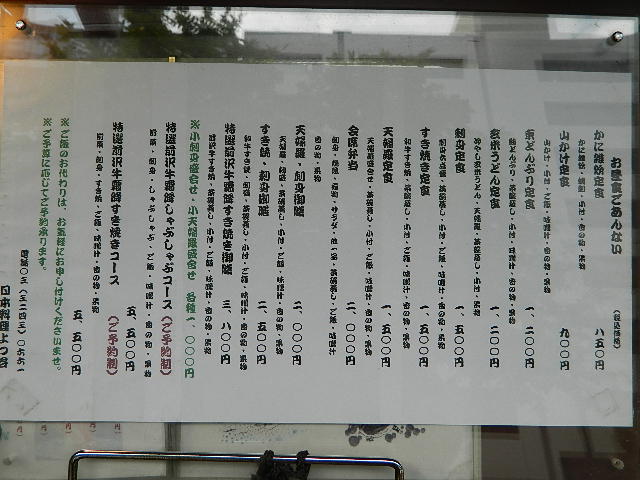 お昼食ごあんない
(税込価格)
かに雑炊定食 八五〇円
かに雑炊・刺身・小付・香の物・果物
山かけ定食 九〇〇円
山かけ・小付・ご飯・味噌汁・香の物・果物
京どんぶり定食 一、二〇〇円
京どんぶり・茶碗蒸し・小付・味噌汁・香の物・果物
玄米うどん定食 一、二〇〇円
冷やし玄米うどん・天婦羅・茶碗蒸し・小付・果物
刺身定食 一、五〇〇円
刺身盛合せ・茶碗蒸し・小付・ご飯・味噌汁・香の物・果物
すき焼き定食 一、五〇〇円
和牛すき焼・茶碗蒸し・小付・ご飯・味噌汁・香の物・果物
天婦羅定食 一、五〇〇円
天婦羅盛合せ・茶碗蒸し・小付・ご飯・味噌汁・香の物・果物
会席弁当 二、〇〇〇円
刺身・焼物・煮物・サラダ・茶碗蒸し・ご飯・味噌汁
香の物・果物
天婦羅・刺身御膳 二、〇〇〇円
天婦羅・刺身・茶碗蒸し・小付・ご飯・味噌汁・香の物・果物
すき焼・刺身御膳 二、五〇〇円
和牛すき焼・刺身・茶碗蒸し・小付・ご飯・味噌汁・香の物・果物
特選前沢牛霜降すき焼き御膳 三、八〇〇円
前沢牛すき焼・茶碗蒸し・小付・ご飯・味噌汁・香の物・果物
※小刺身盛合せ・小天婦羅盛合せ 各種一、〇〇〇円
特選前沢牛霜降しゃぶしゃぶコース(ご予約制) 五、五〇〇円
前菜・刺身・しゃぶしゃぶ・ご飯・味噌汁・香の物・果物
特選前沢牛霜降すき焼きコース(ご予約制) 五、五〇〇円
前菜・刺身・すき焼・ご飯・味噌汁・香の物・果物
※ご飯のお代わりは、お気軽にお申し付けくださいませ。
※ご予算に応じてご予約承ります。
日本料理よつ谷